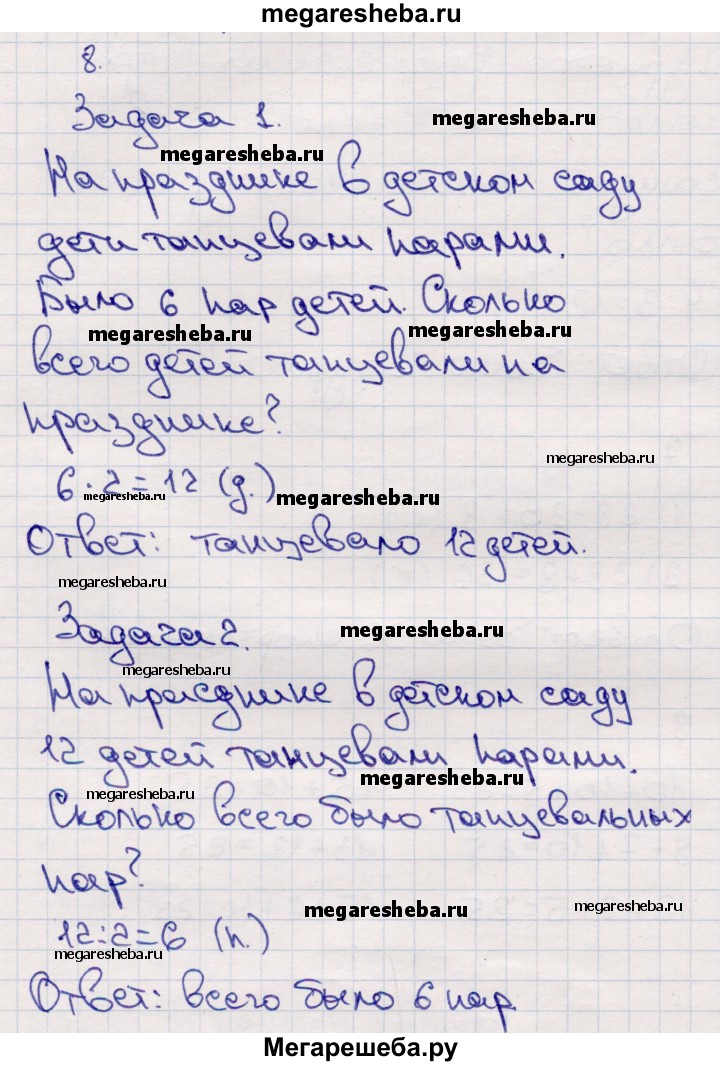 megaresheba.ru
8.
Задача 1.
megaresheba.ru
megaresheba.ru
На празднике в детском саду
дети танцевали парами.
Было 6 пар детей. Сколько
megaresheba.ru
megaresheba.ru
всего детей танцевали на
празднике?
megaresheba.ru
6 · 2 = 12 (д.)
megaresheba.ru
megaresheba.ru
Ответ: танцевало 12 детей.
megaresheba.ru
Задача 2.
megaresheba.ru
megaresheba.ru
На прасднике в детском саду
12 детей танцевали парами.
megaresheba.ru
megaresheba.ru
Сколько всего было танцевальных
пар?
megaresheba.ru
megaresheba.ru
12:2=6 (п.)
megaresheba.ru
Ответ: всего было 6 пар
megaresheba.ru
Мегарешеба.ру